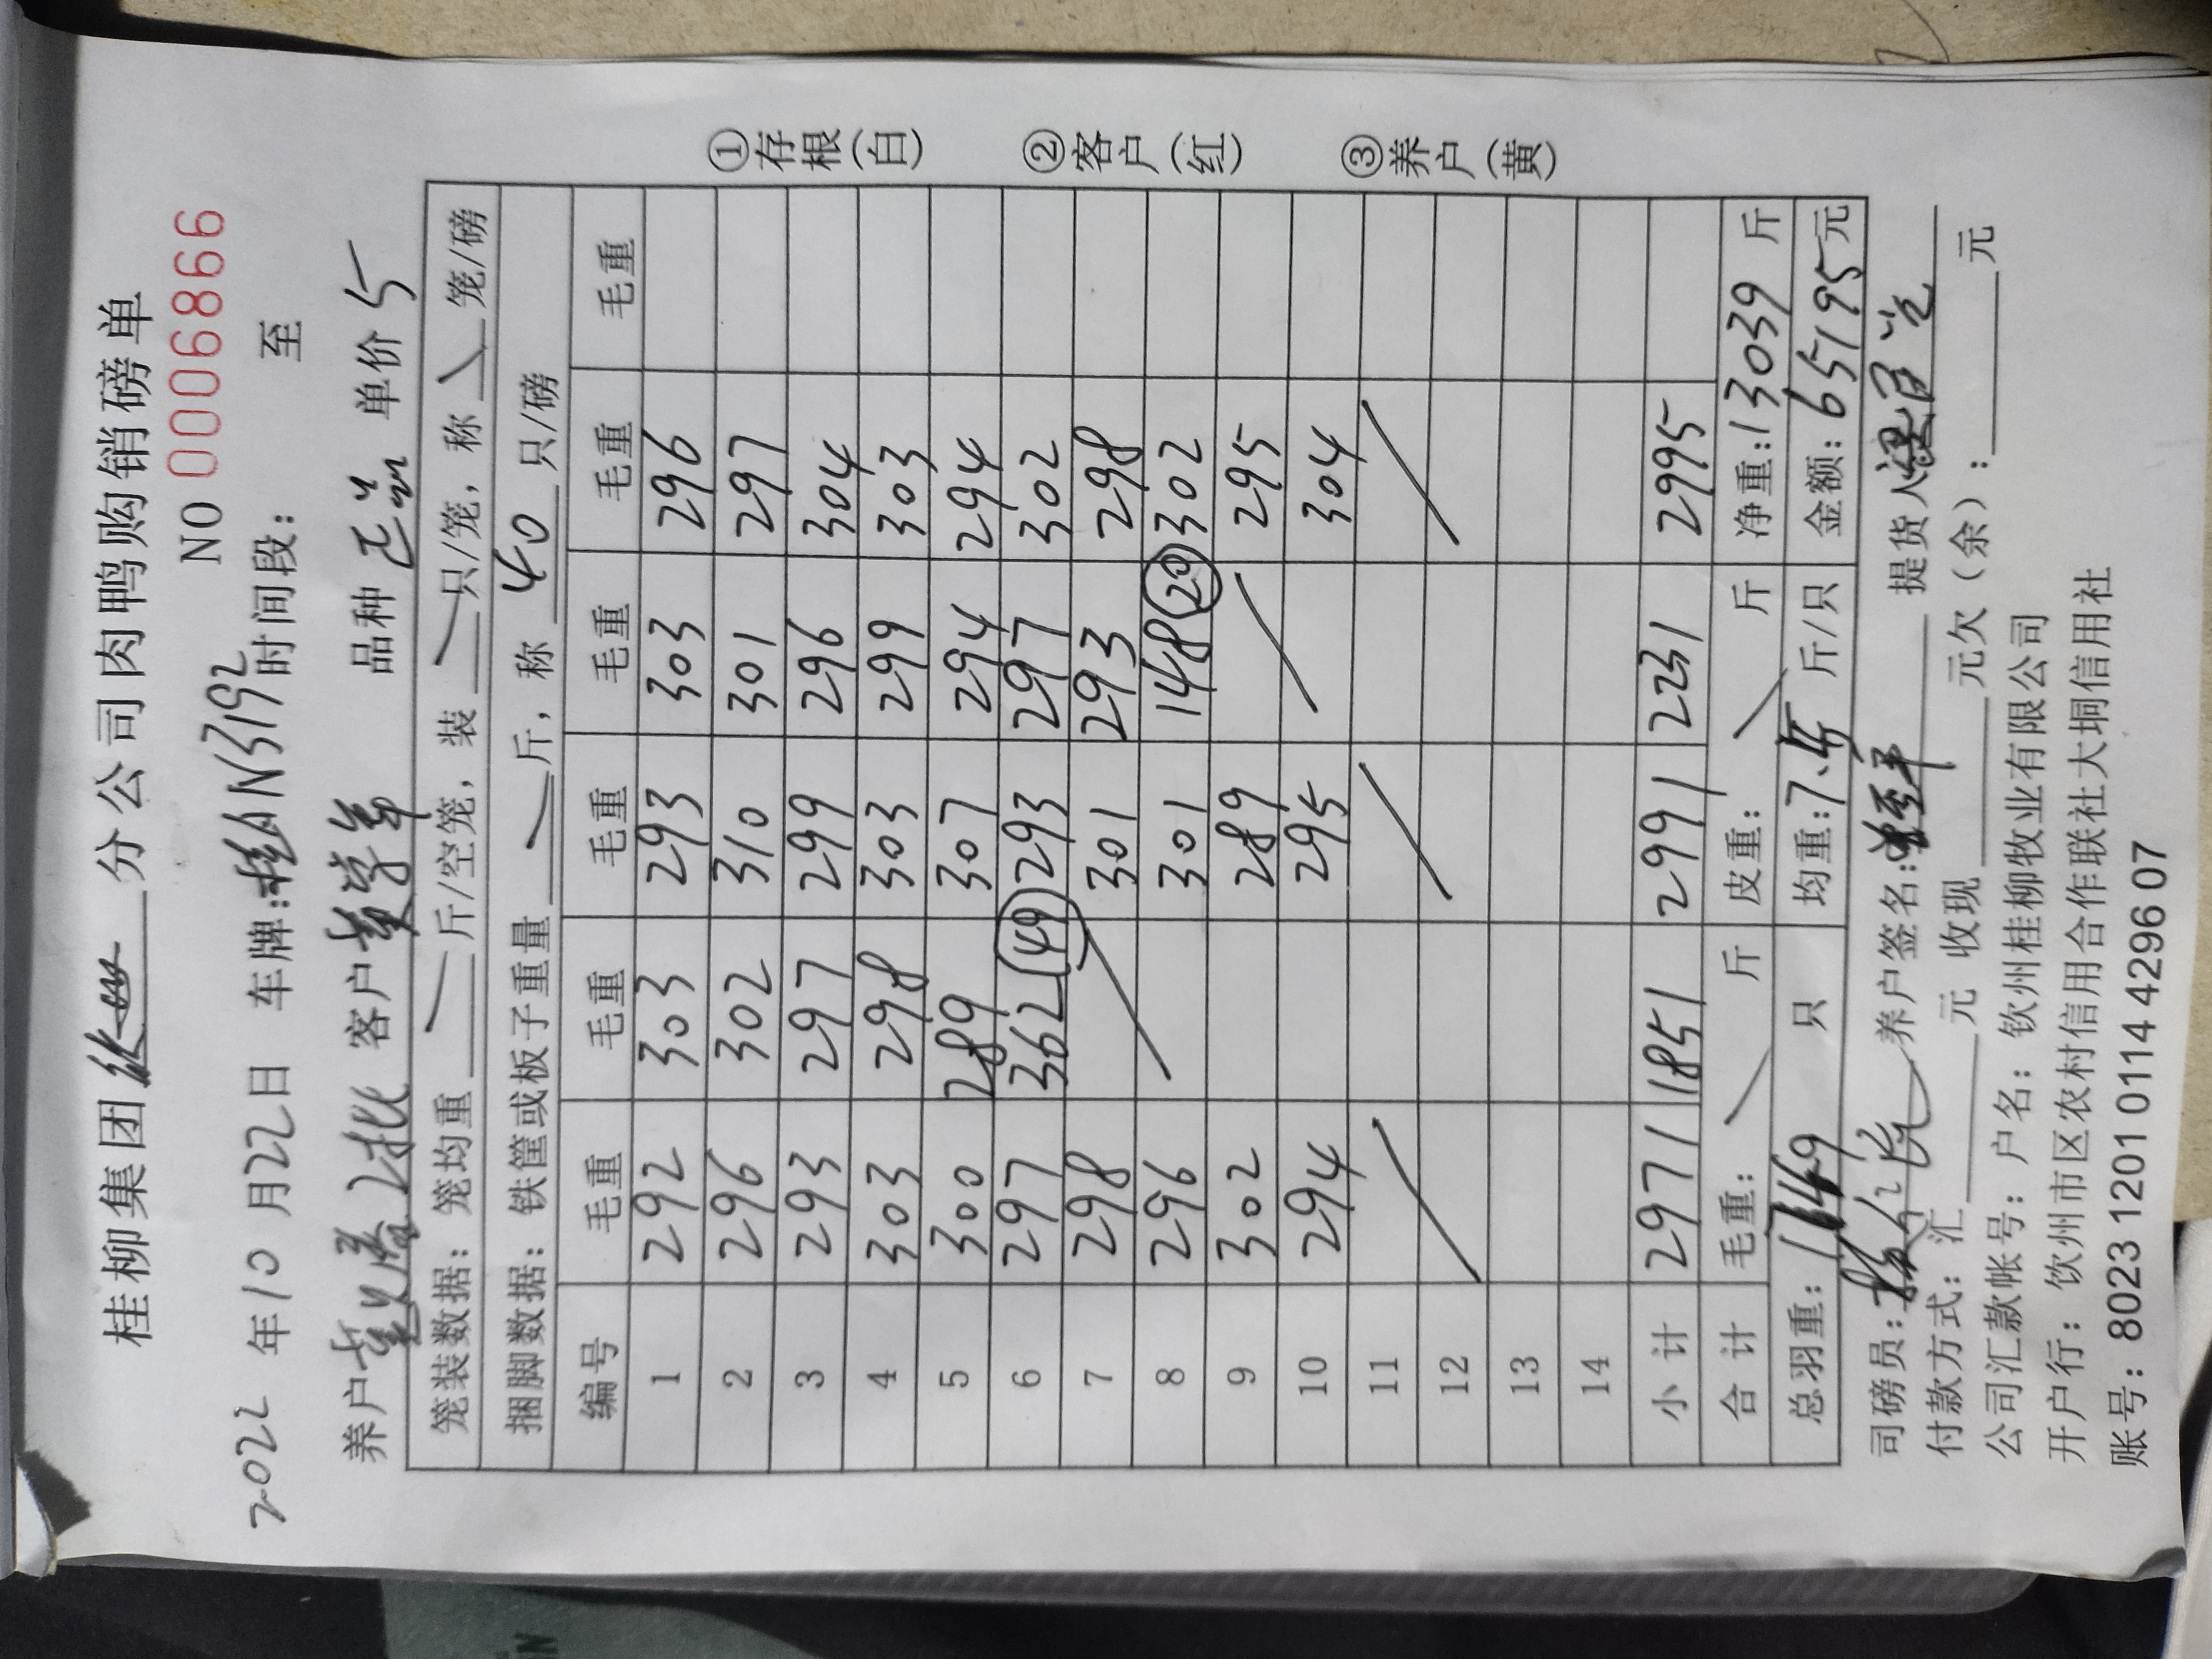 桂柳集团 分公司肉鸭购销磅单
NO 0006866
2022 年 10 月 22 日 车牌:桂AN3192 时间段: 至
养户 2批 客户 黄学年 品种 正品 单价 5
笼装数据: 笼均重 斤/空笼, 装 只/笼, 称 笼/磅
捆脚数据: 铁筐或板子重量 斤, 称 40 只/磅
编号 毛重 毛重 毛重 毛重 毛重 毛重
1 292 303 293 303 296
2 296 302 310 301 297
3 293 297 299 296 304
4 303 298 303 299 303
5 300 289 307 294 294
6 297 362 (49) 293 297 302
7 298 301 293 298
8 296 301 148 (20) 302
9 302 289 295
10 294 295 304
11
12
13
14
小计 2971 1851 2991 2231 2995
合计 毛重: 斤 皮重: 斤 净重: 13039 斤
总羽重: 1749 只 均重: 7.45 斤/只 金额: 65195元
司磅员: 养户签名: 提货人
付款方式: 汇 元 收现 元欠(余): 元
公司汇款帐号: 户名: 钦州桂柳牧业有限公司
开户行: 钦州市区农村信用合作联社大垌信用社
账号: 8023 1201 0114 4296 07
①存根(白) ②客户(红) ③养户(黄)